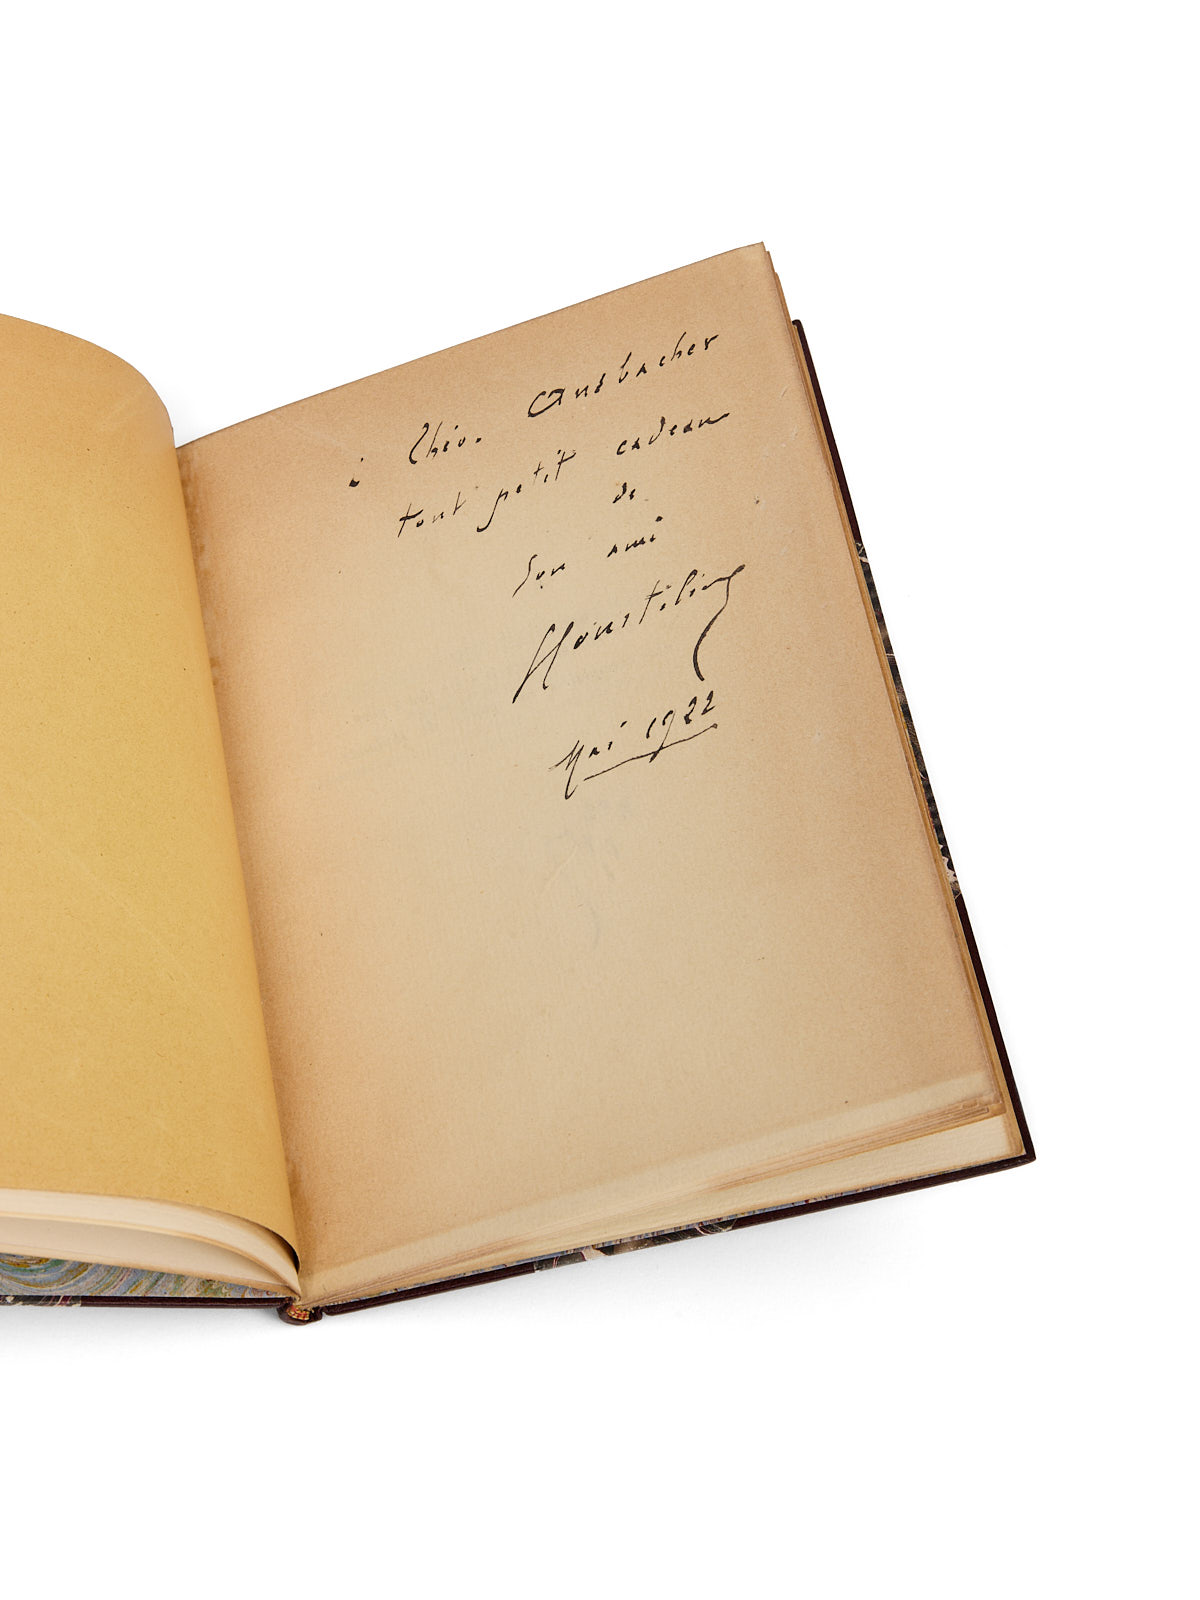 à Théo. Ansbacher
tout petit cadeau
de
son ami
Mai 1922